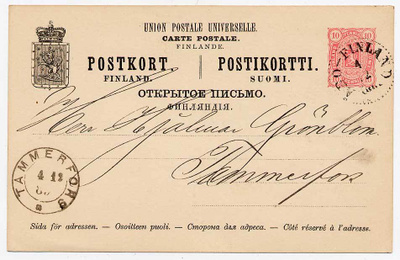 UNION POSTALE UNIVERSELLE.
CARTE POSTALE.
FINLANDE.
POSTKORT. POSTIKORTTI.
FINLAND. SUOMI.
ОТКРЫТОЕ ПИСЬМО.
ФИНЛЯНДІЯ.
10 10
FINLAND
Herr Hjalmar Grönblom
Tammerfors
TAMMERFORS
4 12
Sida för adressen. – Osoitteen puoli. – Сторона для адреса. – Côté réservé à l'adresse.